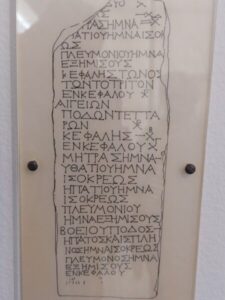 ΥΟ
ΡΑΣΗΜΝΑ
ΠΑΤΙΟΥΗΜΝΑΙΣΟΚ
ΩΣ
ΠΛΕΥΜΟΝΙΟΥΗΜΝΑ
ΕΞΗΜΙΣΟΥΣ
ΚΕΦΑΛΗΣΤΩΝΟΣ
ΤΩΝΤΟΤΡΙΤΟΝ
ΕΝΚΕΦΑΛΟΥ
ΑΙΓΕΙΩΝ
ΠΟΔΩΝΤΕΤΤΑ
ΡΩΝ
ΚΕΦΑΛΗΣ
ΕΝΚΕΦΑΛΟΥ
ΜΗΤΡΑΣΗΜΝΑ
ΥΘΑΤΙΟΥΗΜΝΑ
ΙΣΟΚΡΕΩΣ
ΗΠΑΤΙΟΥΗΜΝΑ
ΙΣΟΚΡΕΩΣ
ΠΛΕΥΜΟΝΙΟΥ
ΗΜΝΑΕΞΗΜΙΣΟΥΣ
ΒΟΕΙΟΥΠΟΔΟΣ
ΗΠΑΤΟΣΚΑΙΣΠΛΗ
ΝΟΣΗΜΝΑΙΣΟΚΡΕΩΣ
ΠΛΕΥΜΟΝΟΣΗΜΝΑ
ΕΞΗΜΙΣΟΥΣ
ΕΝΚΕΦΑΛΟΥ